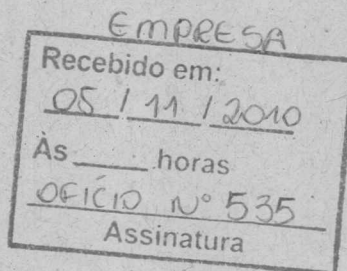 EMPRESA
Recebido em:
05 / 11 / 2010
Às ______ horas
OFÍCIO Nº 535
Assinatura